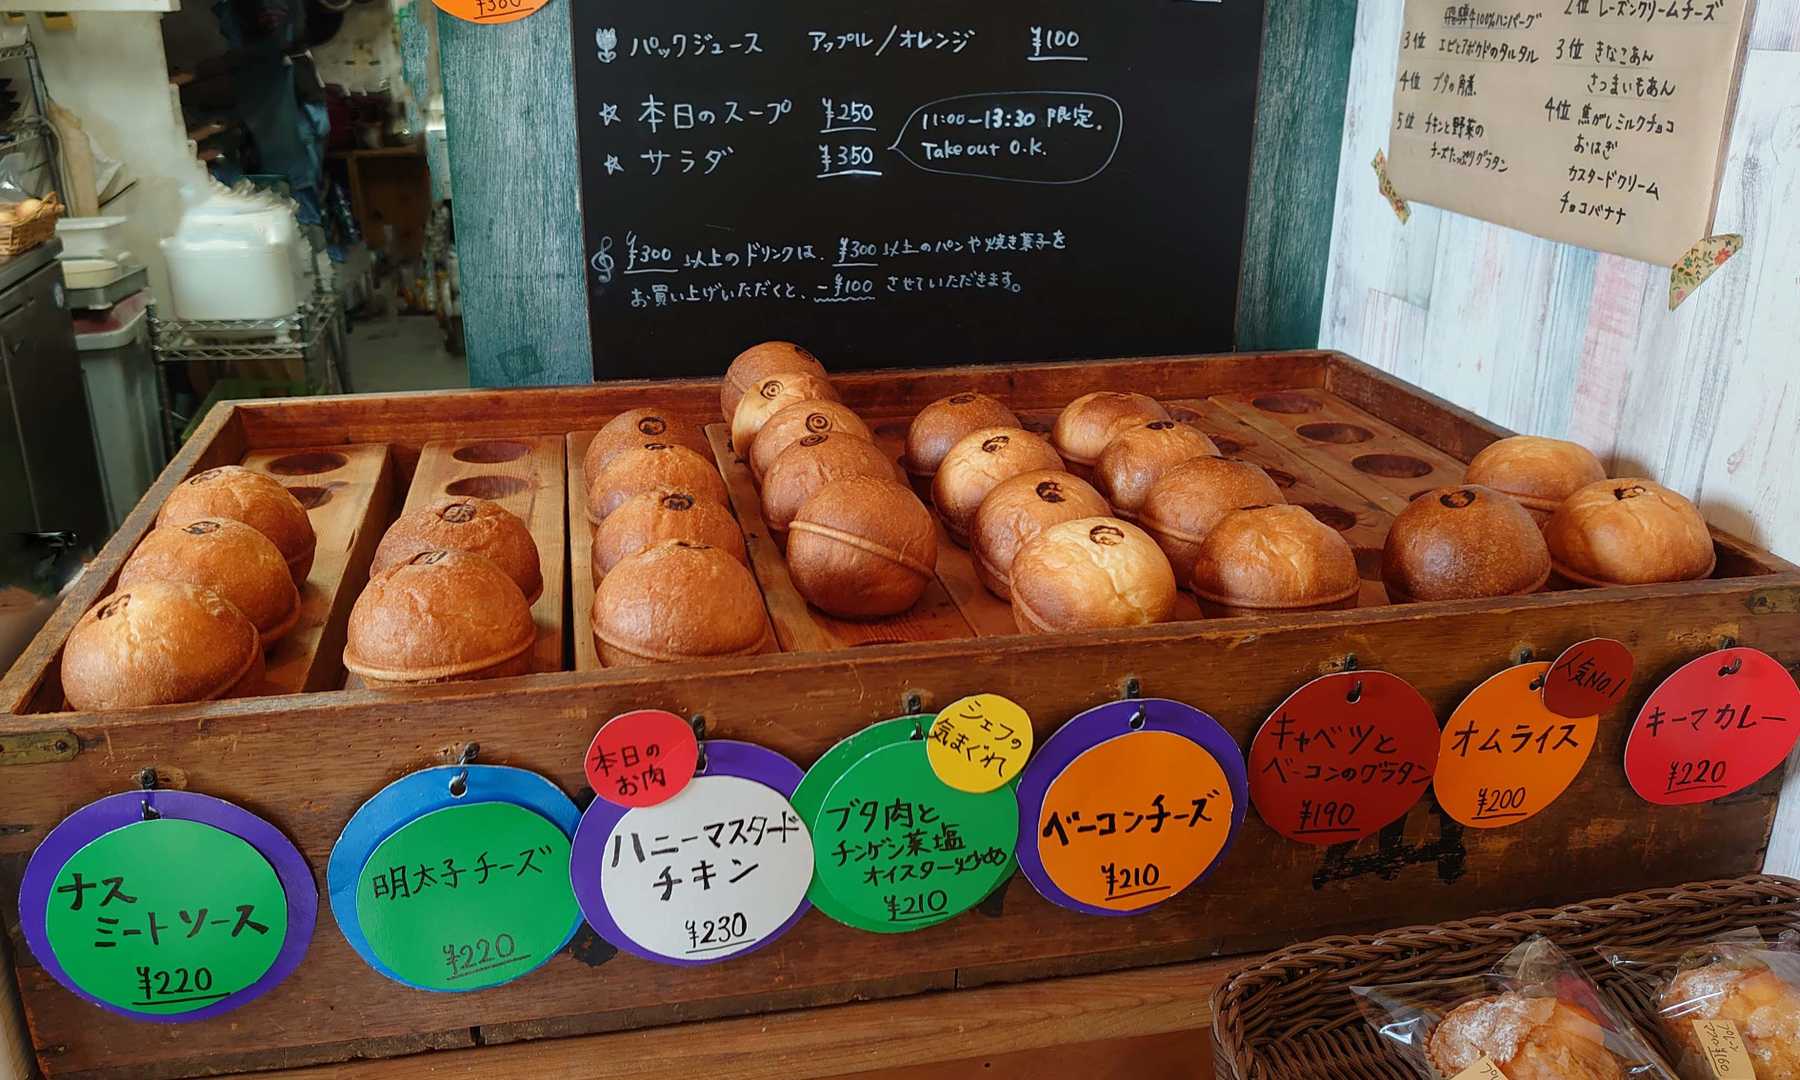 ¥300
パックジュース アップル/オレンジ ¥100
☆ 本日のスープ ¥250
☆ サラダ ¥350
11:00-13:30 限定.
Take out O.K.
¥300 以上のドリンクは、¥300 以上のパンや焼き菓子を
お買い上げいただくと、-¥100 させていただきます。
飛騨牛100%ハンバーグ
3位 エビとアボカドのタルタル
4位 ブタの角煮
5位 チキンと野菜の
チーズたっぷりグラタン
2位 レーズンクリームチーズ
3位 きなこあん
さつまいもあん
4位 焦がしミルクチョコ
おはぎ
カスタードクリーム
チョコバナナ
ナス
ミートソース
¥220
明太子チーズ
¥220
本日の
お肉
ハニーマスタード
チキン
¥230
シェフの
気まぐれ
ブタ肉と
チンゲン菜塩
オイスター炒め
¥210
ベーコンチーズ
¥210
キャベツと
ベーコンのグラタン
¥190
人気NO.1
オムライス
¥200
キーマカレー
¥220
プレーン
¥160